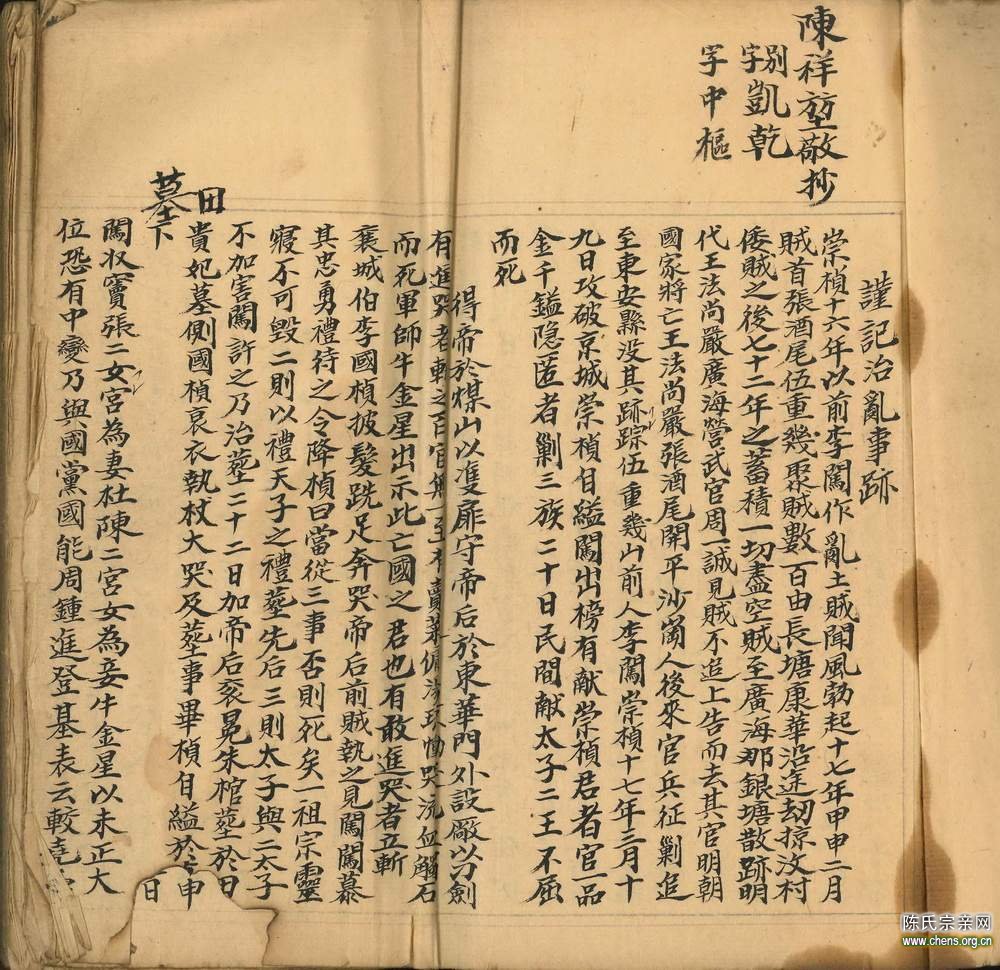 陳祥堃敬抄
別字凱乾
字中樞
謹記治亂事跡
崇禎十六年以前李闖作亂土賊聞風勃起十七年甲申二月
賊首張酒尾伍重幾聚賊數百由長塘康華沿途劫掠汶村
倭賊之後七十二年之蓄積一切盡空賊至廣海那銀塘散跡明
代王法尚嚴廣海營武官周一誠見賊不追上告而去其官明朝
國家將亡王法尚嚴張酒尾開平沙崗人後來官兵征剿追
至東安縣没其跡踪伍重幾山前人李闖崇禎十七年三月十
九日攻破京城崇禎自縊闖出榜有献崇禎君者官一品
金千鎰隐匿者剿三族二十日民間献太子二王不屈
而死
得帝於煤山以隻扉守帝后於東華門外設廠以刀劍
有進哭者斬之百官無一至有賣菜傭 慟哭流血觸石
而死軍師牛金星出示此亡國之君也有敢進哭者立斬
襄城伯李國禎披髮跣足奔哭帝后前賊執之見闖闖慕
其忠勇禮待之令降禎曰當從三事否則死矣一祖宗靈
寢不可毁二則以禮天子之禮塟先后三則太子與二太子
不加害闖許之乃治塟二十二日加帝后衮冕朱棺塟於日
貴妃墓側國禎哀衣執杖大哭及塟事畢禎自縊於 申
田
墓下 日
闖収竇張二女宮為妻杜陳二宮女為妾牛金星以未正大
位恐有中變乃與國黨國能周鍾進登基表云較堯
陈氏宗亲网
www.chens.org.cn